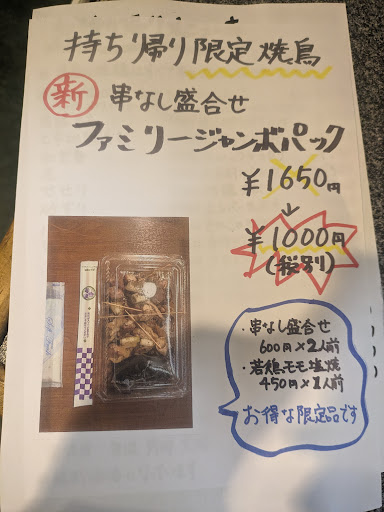 持ち帰り限定焼鳥
新 串なし盛合せ
ファミリージャンボパック
¥1650円
↓
¥1000円
(税別)
・串なし盛合せ
600円×2人前
・若鶏モモ塩焼
450円×1人前
お得な限定品です